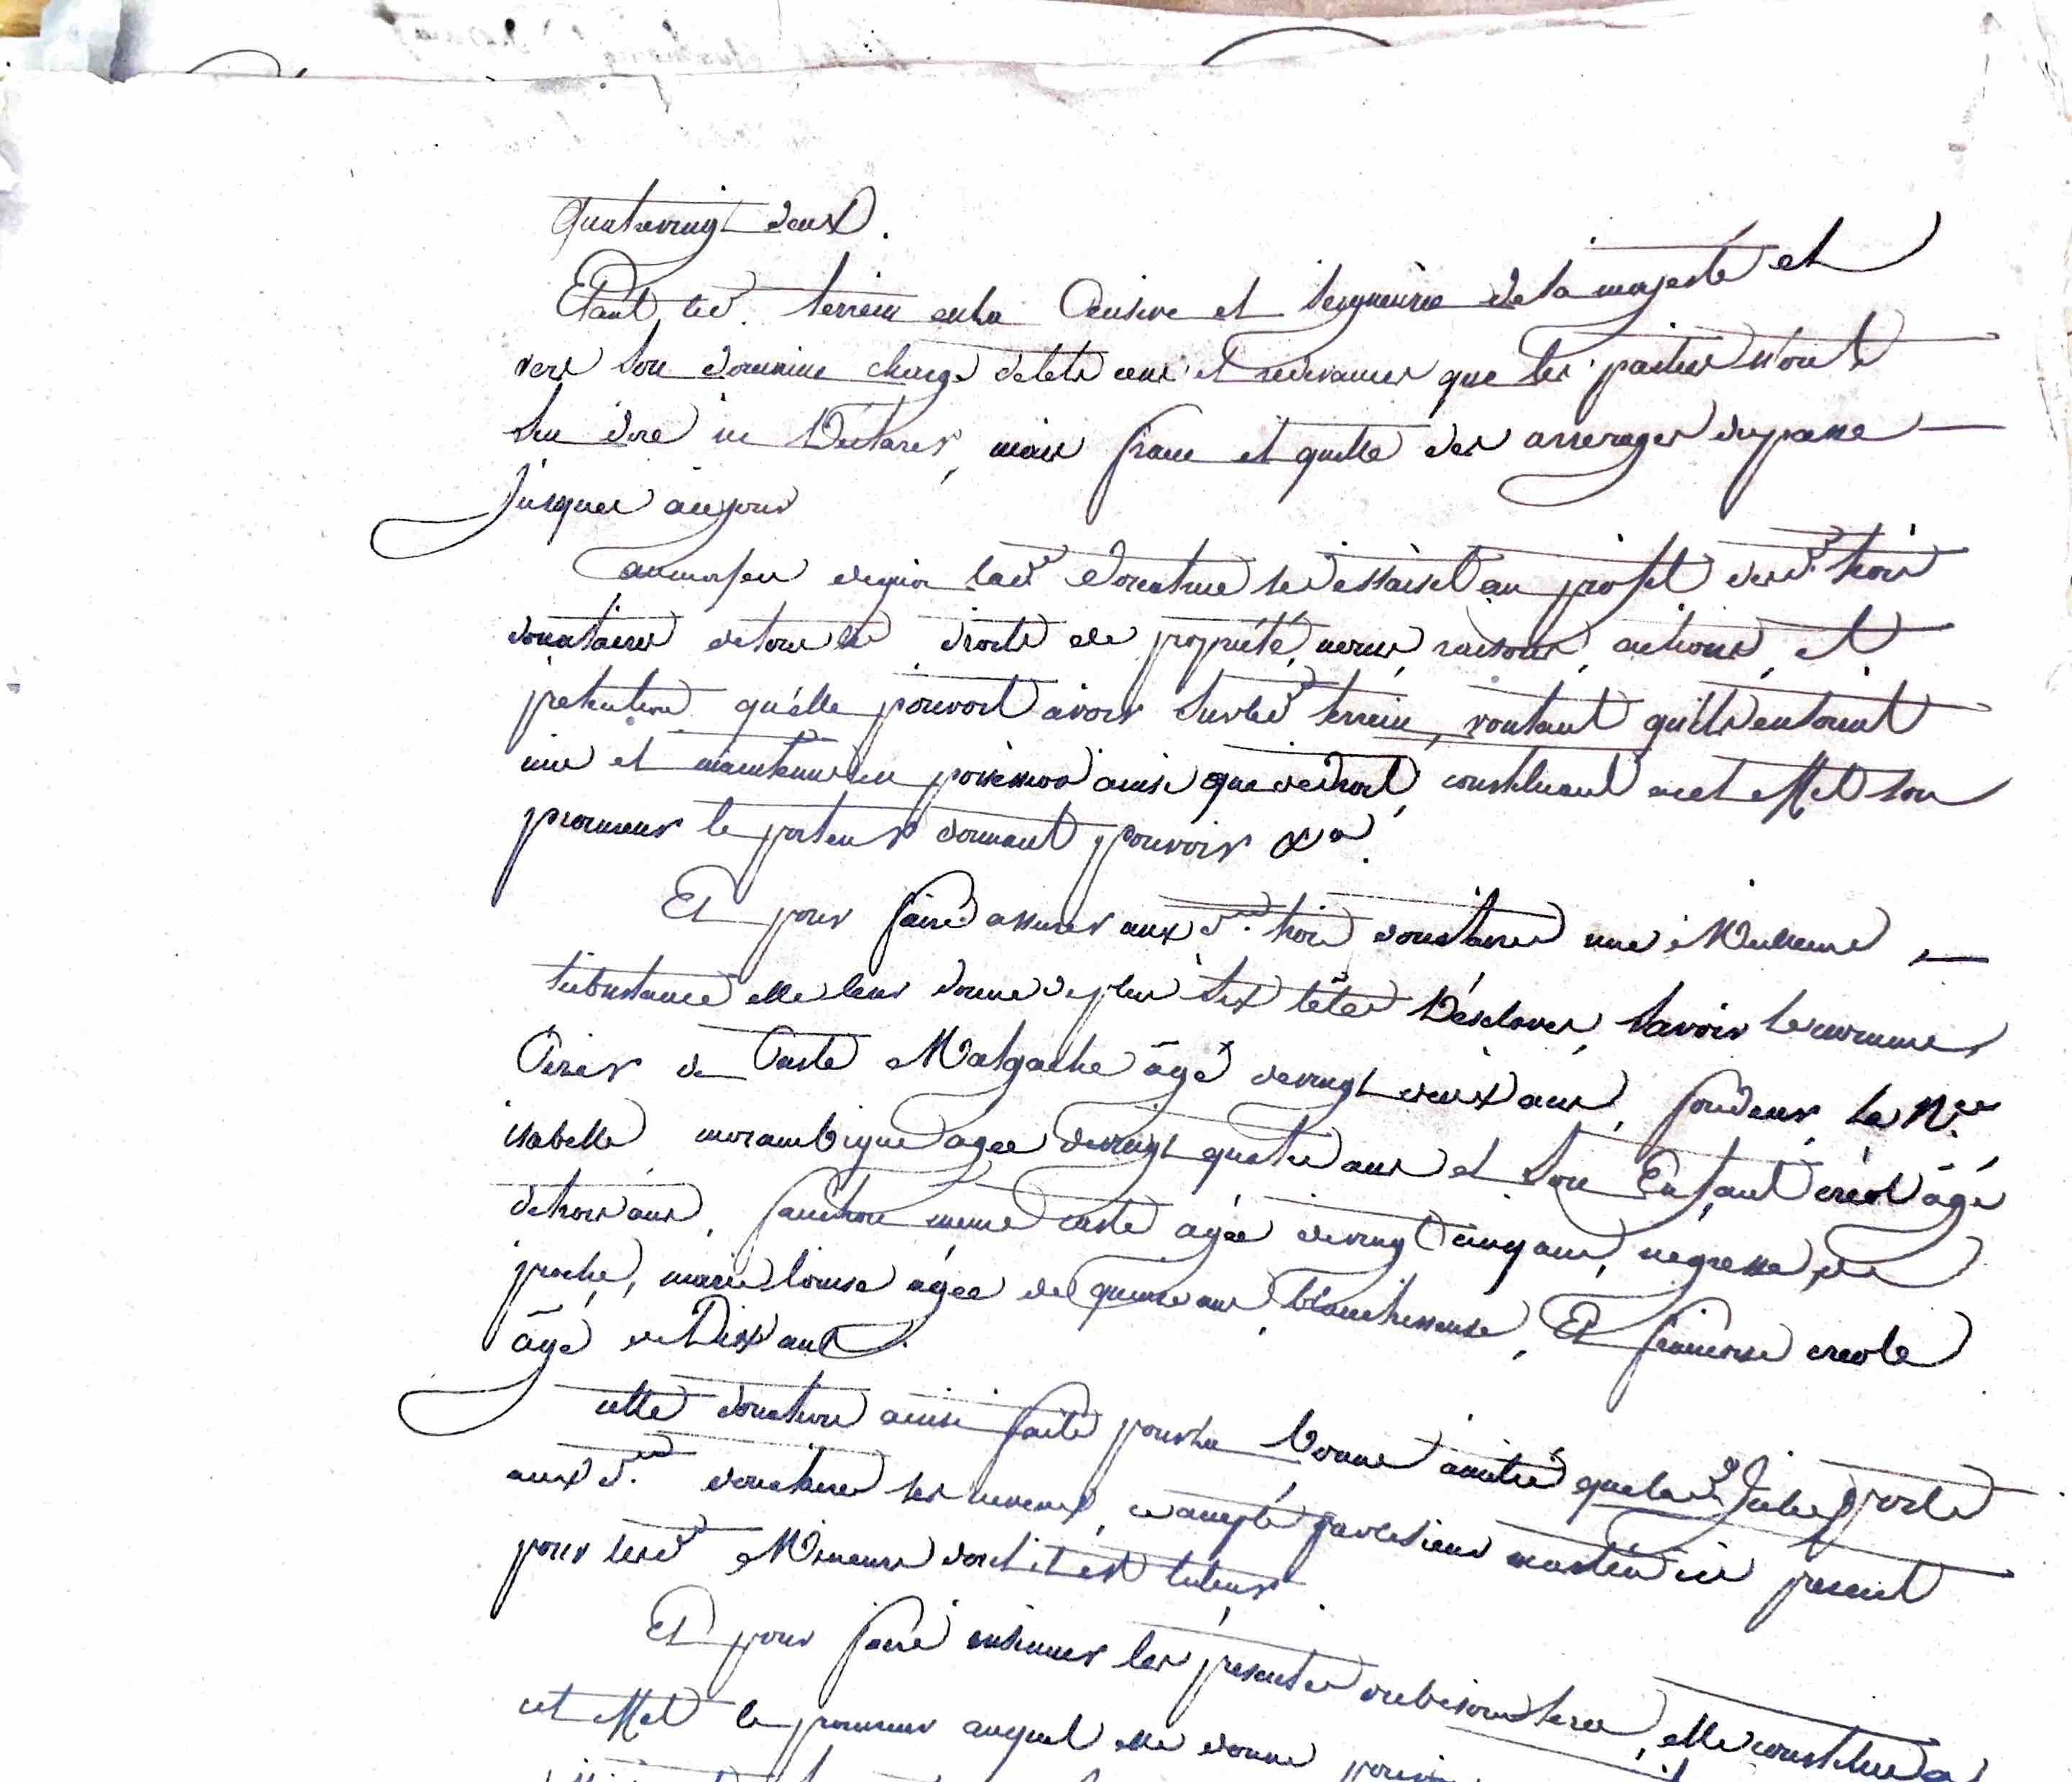 Quatrevingt deux.
Etant led. terrein en la Censive et Seigneurie de sa majesté et
vers son domaine chargé de tels cens et redevances que les parties n'ont
su dire ni Déclarer, mais franc et quitte des arrerages du passé
Jusques à ce jour
au moyen de quoi lad.e Donatrice se dessaisit au profit desd. trois
donataires de tous les droits de propriété, noms, raisons, actions, et
pretentions qu'elle pouvoit avoir sur led. terrein, voulant qu'ils en soient
mis et maintenus en possession ainsi que de droit, constituant à cet effet son
procureur le porteur donnant pouvoir &a.
Et pour faire assurer aux d. trois donataires une Meilleure
subsistance elle leur donne de plus six têtes D'esclaves, Savoir Le nommé
de Caste Malgache âgé de vingt deux ans, la N.sse
isabelle mozambique agée de vingt quatre ans et son Enfant créol âgé
de trois ans, fanchon meme caste agée de vingt cinq ans, negresse de
pioche, marie louise agée de quinze ans blanchisseuse, Et francoise creole
âgé de Dix ans.
cette donation ainsi faite pour la bonne amitié que lad. Julie porte
aux d. donataires ses neveux, ce accepté par le sieur ici present
pour lesd. Mineurs dont il est tuteur.
Et pour faire insinuer les presentes ou besoin sera, elle constitue a
cet effet le procureur auquel elle donne pouvoir